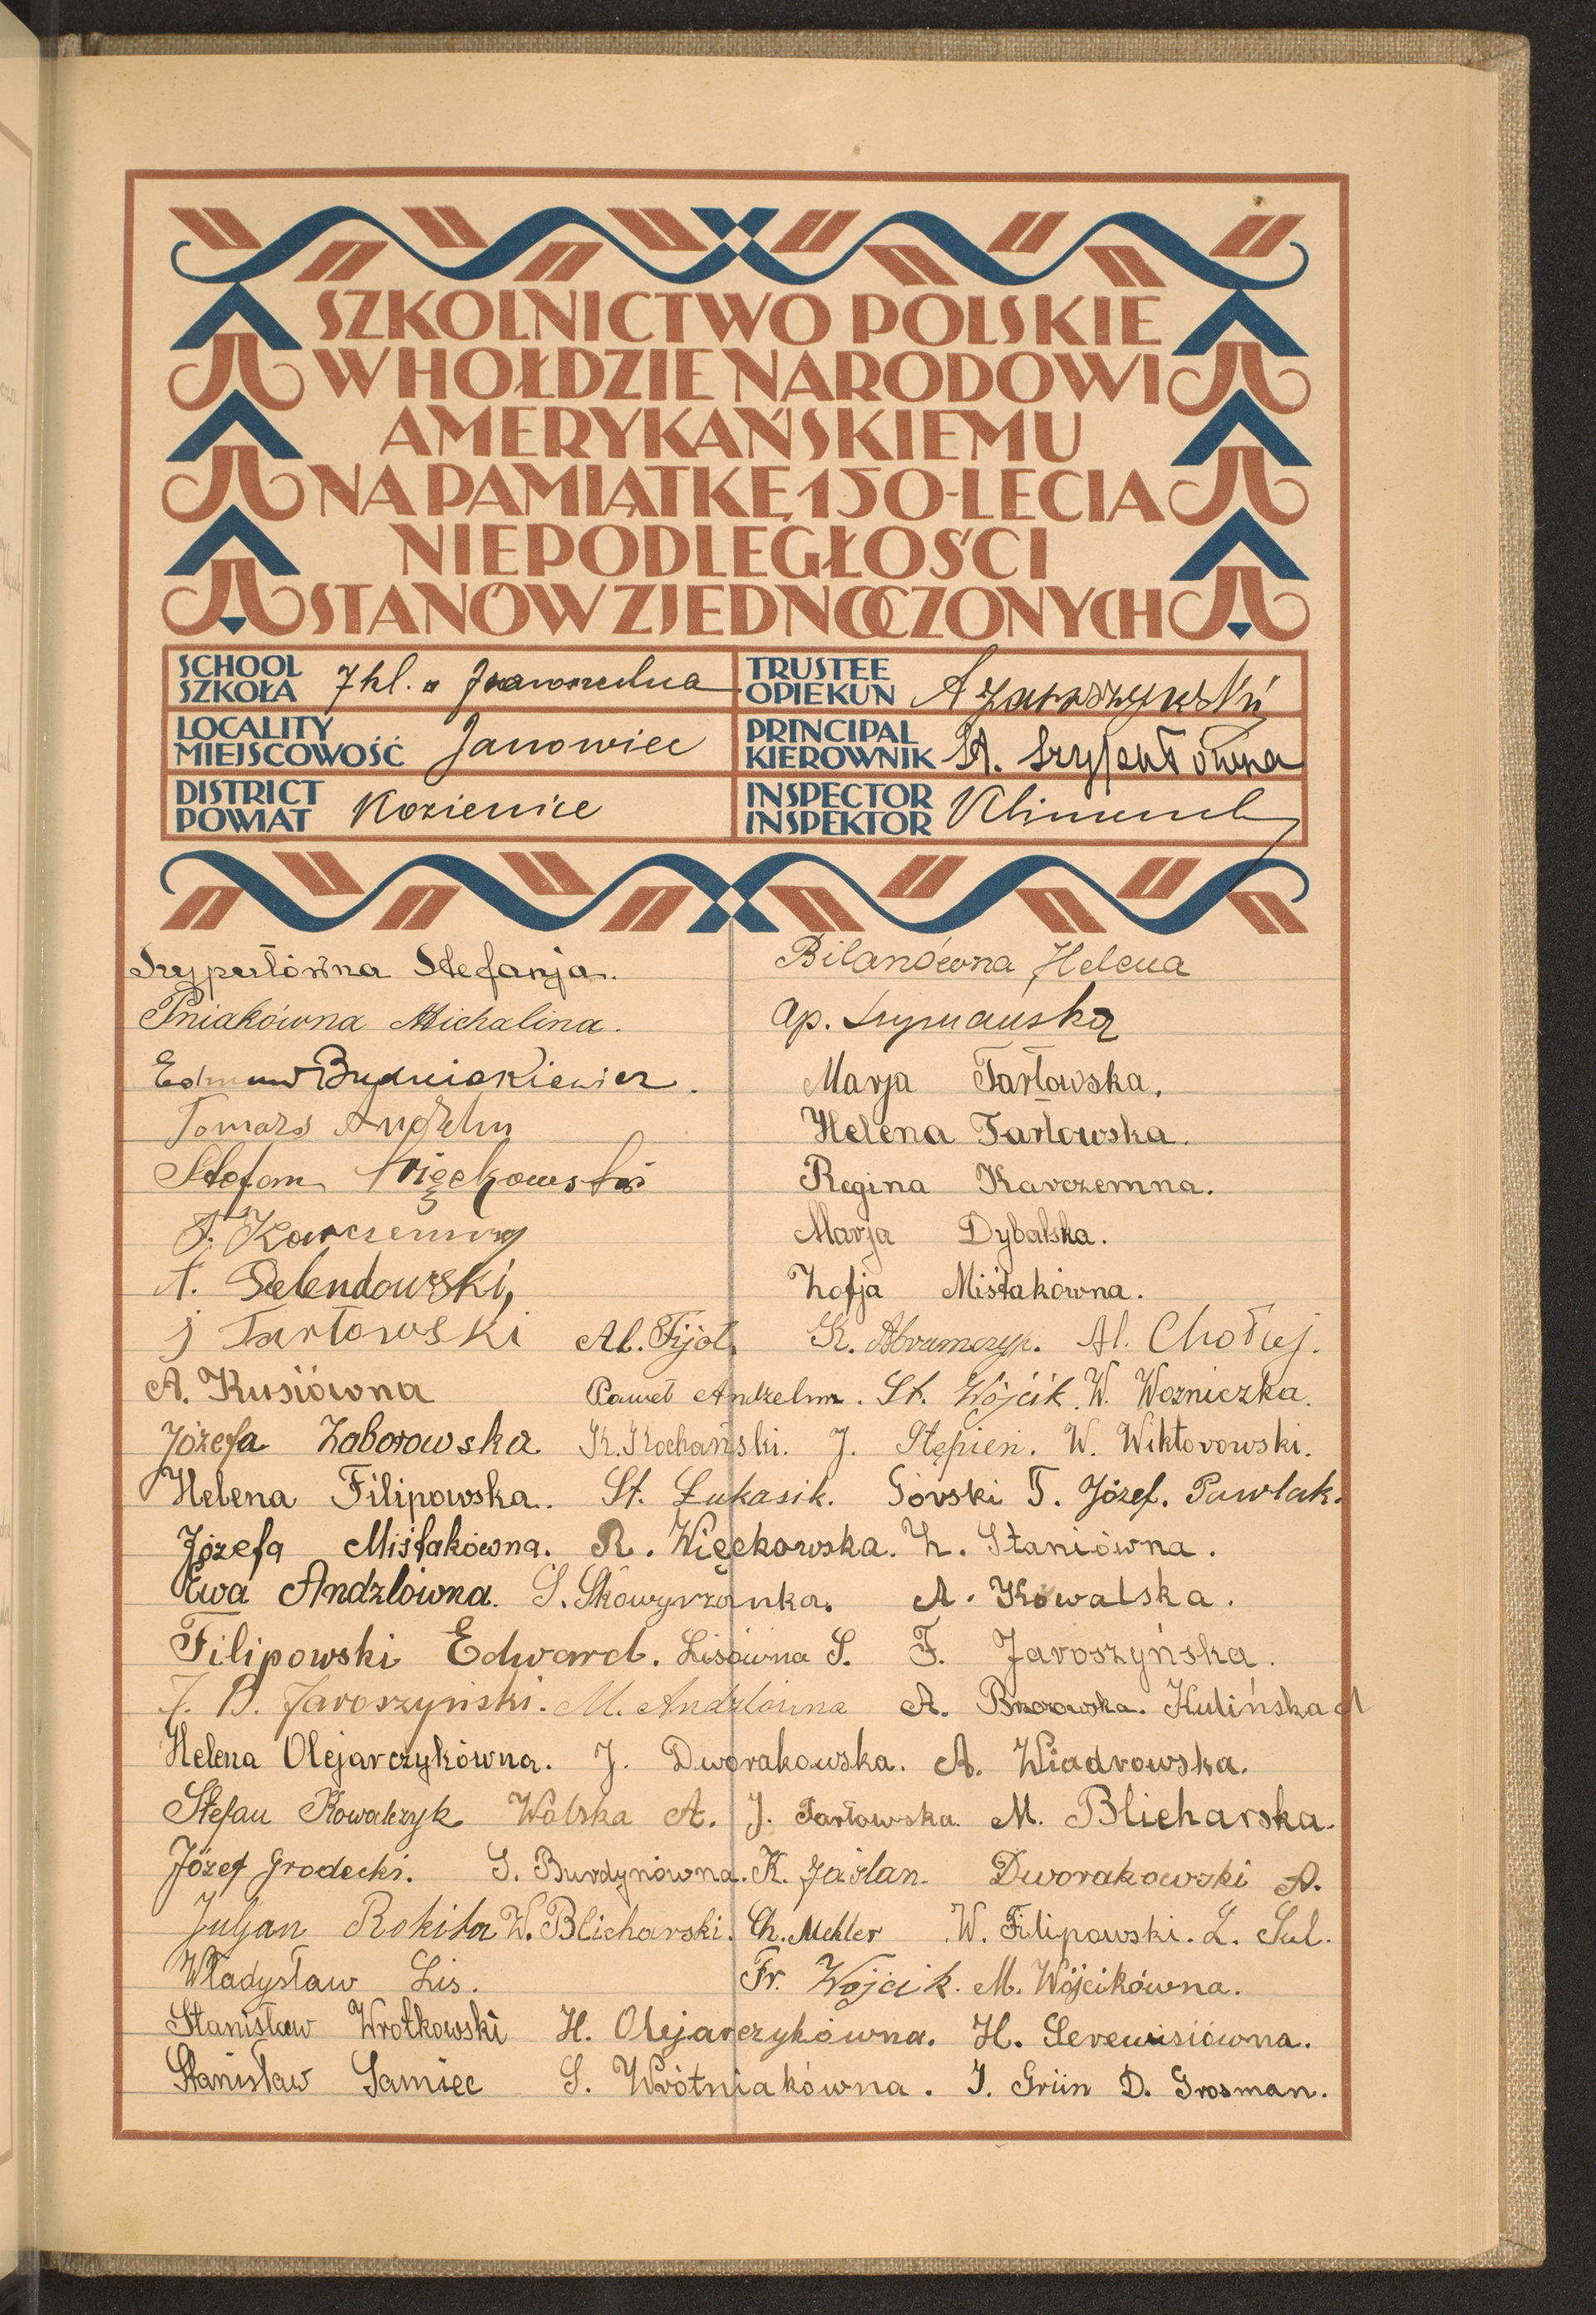 SZKOLNICTWO POLSKIE
W HOŁDZIE NARODOWI
AMERYKAŃSKIEMU
NA PAMIĄTKĘ 150-LECIA
NIEPODLEGŁOŚCI
STANÓW ZJEDNOCZONYCH
SCHOOL
SZKOŁA 7 kl.
TRUSTEE
OPIEKUN
LOCALITY
MIEJSCOWOŚĆ Janowiec
PRINCIPAL
KIEROWNIK St.
DISTRICT
POWIAT Kozienice
INSPECTOR
INSPEKTOR
Szypertówna Stefanja. Bilanówna Helena
Pniakówna Michalina. Ap. Szymańska
Edmund Budniakiewicz. Marja Tarłowska.
Tomasz Helena Tarłowska.
Stefan Więckowski Regina Karczemna.
Marja Dybalska.
A. Zofja Miśtakówna.
J Tarłowski Al. Fijoł. K. Abramczyk. Al. Chołuj.
A. Kusiówna Paweł Andzelm. St. Wójcik. W. Wozniczka.
Józefa Zaborowska K. Kochański. J. Stępień. W. Wiktorowski.
Helena Filipowska. St. Łukasik. Górski T. Józef. Pawlak.
Józefa Miśtakówna. R. Więckowska. Z. Staniówna.
Ewa Andzlówna. S. Skowyrzanka. A. Kowalska.
Filipowski Edward. Lisówna S. F. Jaroszyńska.
J. B. Jaroszyński. M. Andzlówna A. Brzozowska. Kulińska A
Helena Olejarczykówna. J. Dworakowska. A. Wiadrowska.
Stefan Kowalczyk Wolska A. J. Tarłowska. M. Blicharska.
Józef Grodecki. S. Burdzynówna. K. Jaślan. Dworakowski A.
Juljan Rokita W. Blicharski. Ch. Mekler W. Filipowski. Z. Sul.
Władysław Lis. Fr. Wójcik. M. Wójcikówna.
Stanisław Wrotkowski H. Olejarczykówna. H.
Stanisław Samiec S. Wrótniakówna. I. Grün D. Grosman.